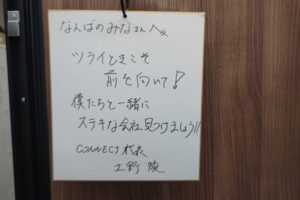 なんばのみなさんへ
ツライときこそ
前を向いて!
僕たちと一緒に
ステキな会社見つけましょう!!
CONNECT代表